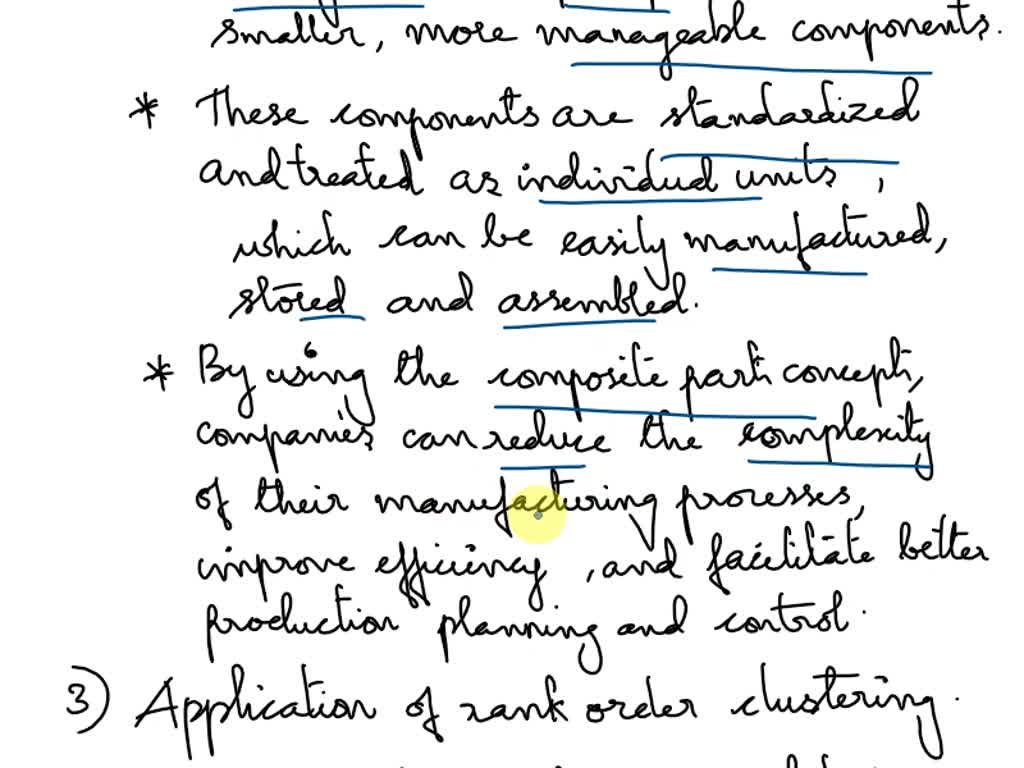 smaller, more manageable components.
* These components are standardized
and treated as individual units,
which can be easily manufactured,
stored and assembled.
* By using the composite part concept,
companies can reduce the complexity
of their manufacturing processes,
improve efficiency, and facilitate better
production planning and control.
3) Application of rank order clustering.